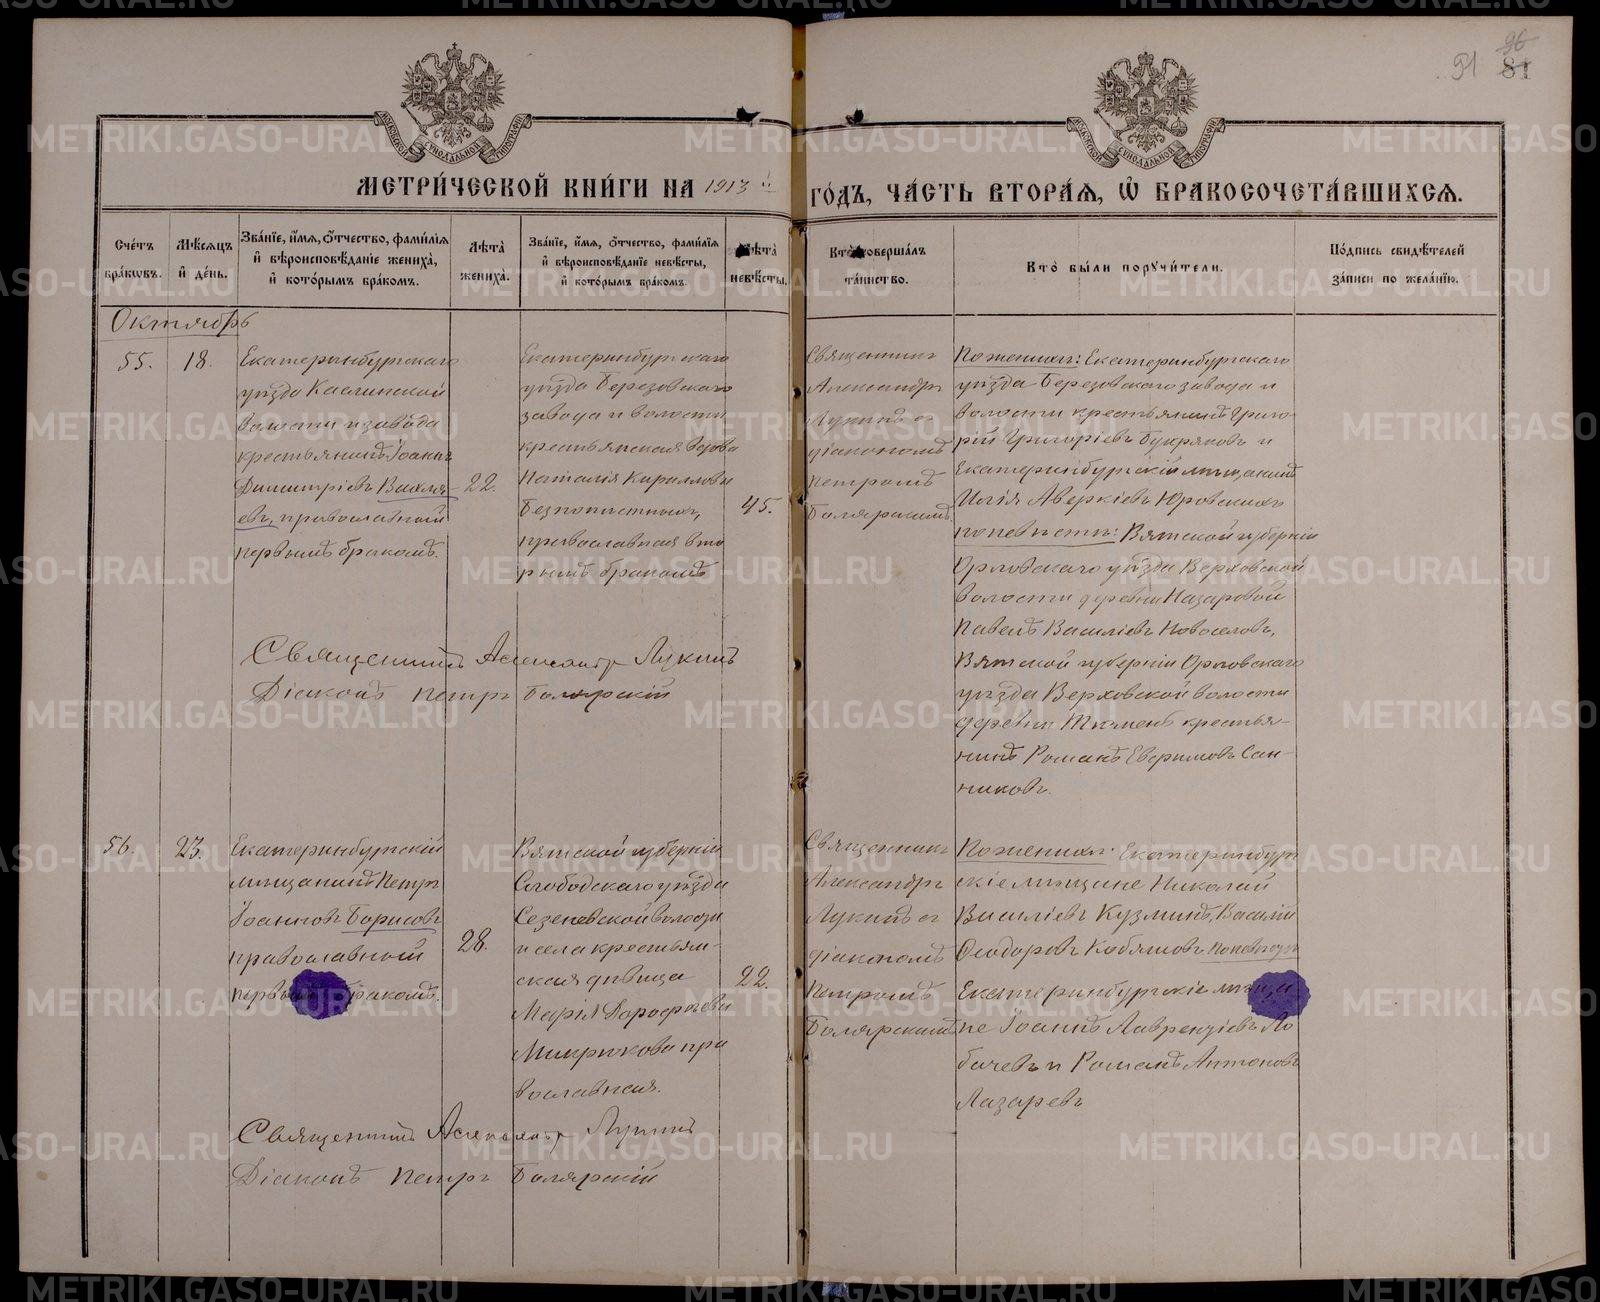 91
96
81
МОСКОВСКОЙ СУНОДАЛЬНОЙ ТИПОГРАФІИ
МОСКОВСКОЙ СУНОДАЛЬНОЙ ТИПОГРАФІИ
МЕТРИ́ЧЕСКОЙ КНИ́ГИ НА 1913 й
ГО́ДЪ, ЧА́СТЬ ВТОРА́Ѧ, Ѽ БРАКОСОЧЕТА́ВШИХСѦ.
Сче́тъ
бра́ковъ.
Мѣ́сяцъ
и҆ де́нь.
Зва́нїе, и҆́мя, ѻ҆́тчество, фами́лїя
и҆ вѣроисповѣ́данїе жениха̀,
и҆ кото́рымъ бра́комъ.
Лѣта̀
жениха̀.
Зва́нїе, и҆́мя, ѻ҆́тчество, фами́лїя
и҆ вѣроисповѣ́данїе невѣ́сты,
и҆ кото́рымъ бра́комъ.
Лѣта̀
невѣ́сты.
Кто̀ соверша́лъ
та́инство.
Кто̀ бы́ли поручи́тели.
По́дпись свидѣ́телей
за́писи по жела́нїю.
Октябрь
55.
18.
Екатеринбургскаго
уѣзда Каслинской
волости и завода
крестьянинъ Іоаннъ
Димитріевъ Вахля-
евъ, православный
первымъ бракомъ.
22.
Екатеринбургскаго
уѣзда Березовскаго
завода и волости
крестьянская вдова
Наталія Кириллова
Безпопистныхъ,
православная вто
рымъ бракомъ
45.
Священникъ
Александръ
Лукинъ съ
діакономъ
Петромъ
Болярскимъ
По женихѣ: Екатеринбургскаго
уѣзда Березовскаго завода и
волости крестьянинъ Григо-
рій Григоріевъ Букряковъ и
Екатеринбургскій мѣщанинъ
Илія Аверкіевъ Юровскихъ
по невѣстѣ: Вятской губерніи
Орловскаго уѣзда Верховской
волости деревни Назаровой
Павелъ Василіевъ Новоселовъ,
Вятской губерніи Орловскаго
уѣзда Верховской волости
деревни крестья-
нинъ Романъ Сан-
никовъ.
Священникъ Александръ Лукинъ
Діаконъ Петръ Болярскій
56.
23.
Екатеринбургскій
мѣщанинъ Петръ
Іоанновъ Борисовъ
православный
первымъ бракомъ.
28.
Вятской губерніи
Слободскаго уѣзда
Сезеневской волости
и села крестьян-
ская дѣвица
Марія Дорофеева
Микрюкова пра
вославная.
22.
Священникъ
Александръ
Лукинъ съ
діакономъ
Петромъ
Болярскимъ
По женихѣ: Екатеринбург
скіе мѣщане Николай
Василіевъ Кузминъ, Василій
Ѳеодоровъ Кобяковъ по невѣстѣ
Екатеринбургскіе мѣща
не Іоаннъ Лаврентіевъ Ло
бачевъ и Романъ Антоновъ
Лазаревъ
Священникъ Александръ Лукинъ
Діаконъ Петръ Болярскій
METRIKI.GASO-URAL.RU